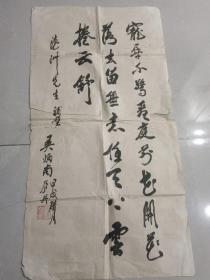 宠辱不惊看庭前花开花
落去留无意任天八云
卷云舒
先生
吴炳南
甲戌